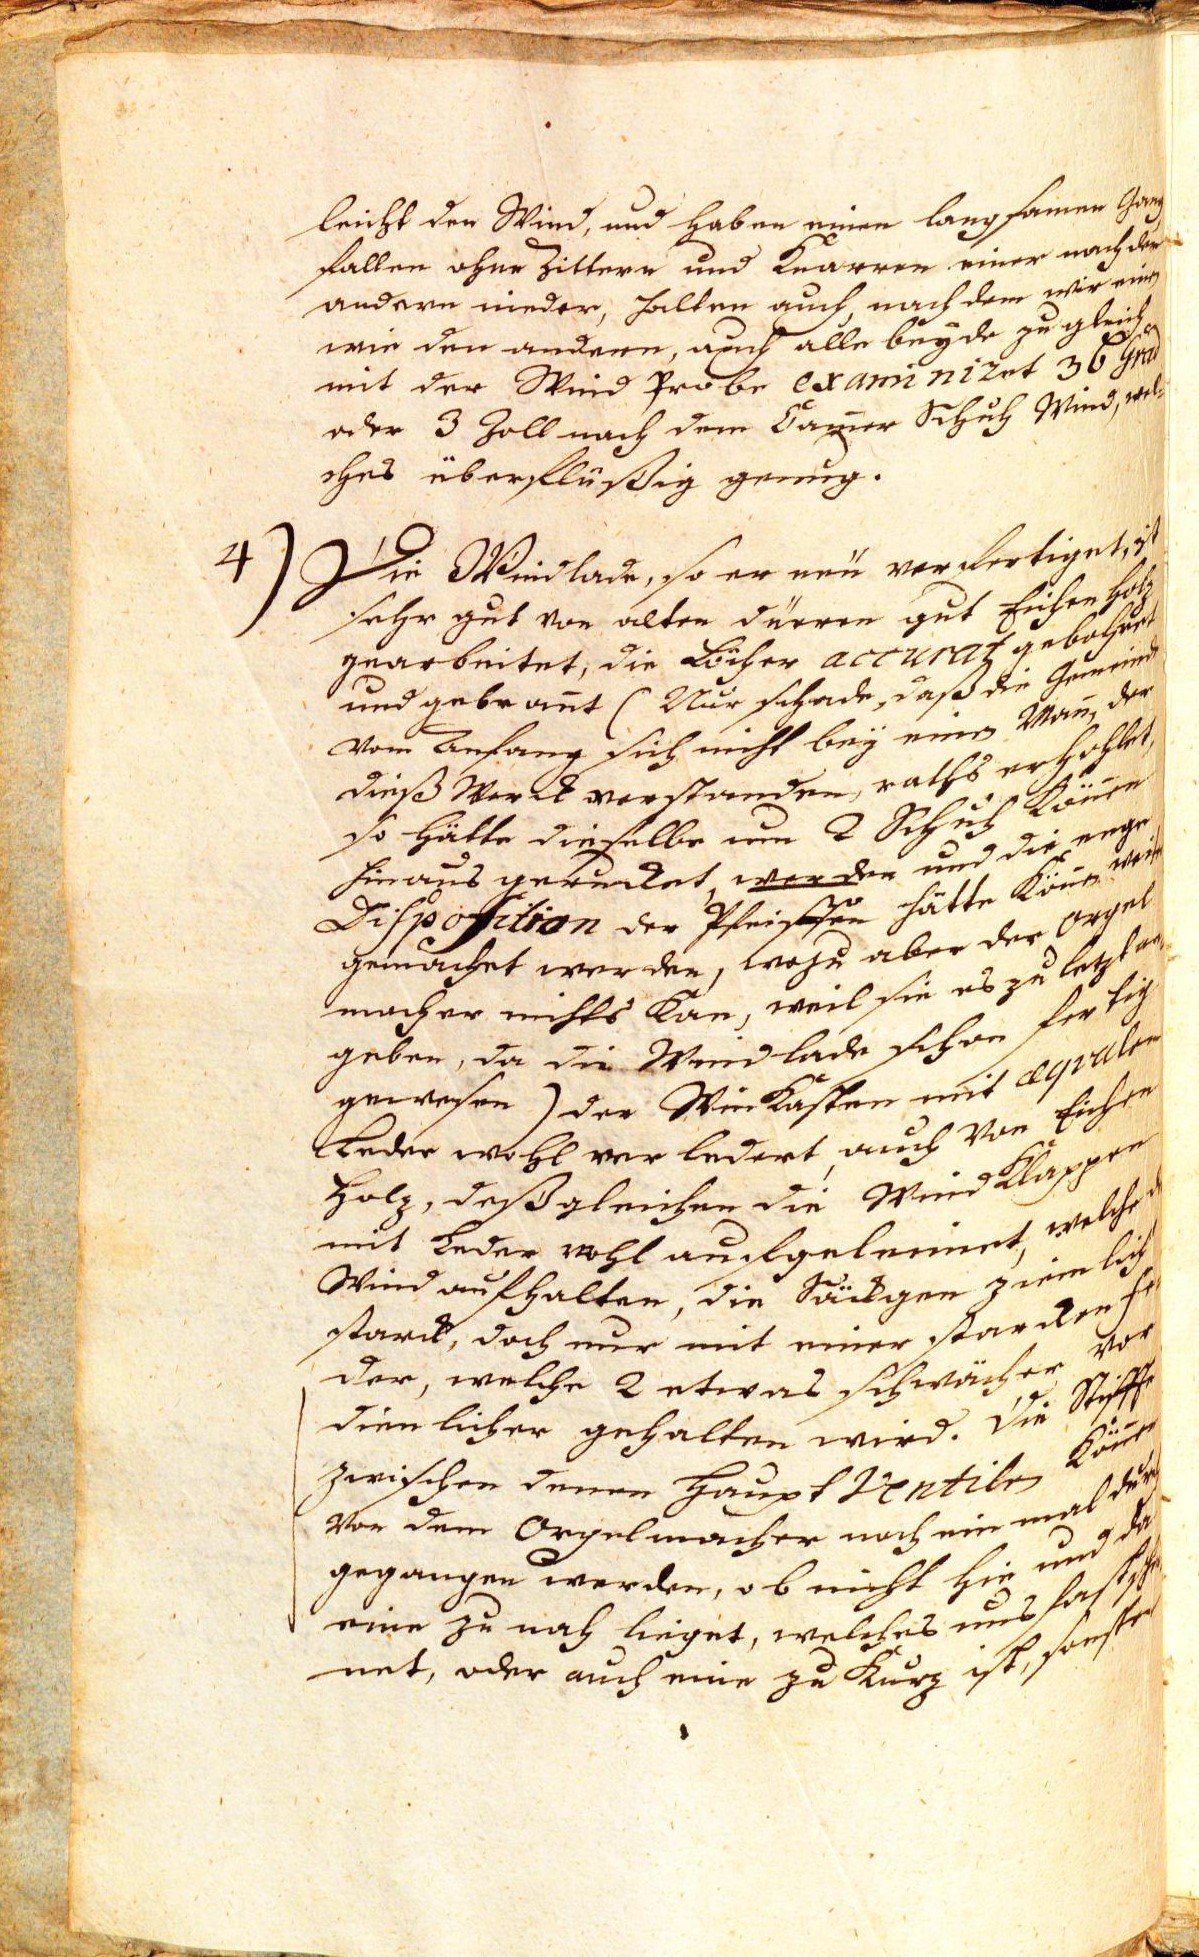 leicht den Wind, und haben einen langsamen Gang
fallen ohne Zittern und Knarren einer nach dem
andern nieder, halten auch, nach dem wir einen
wie den andern, auch alle beyde zu gleich
mit der Wind Probe examinizet 36 Grad
oder 3 Zoll nach dem Cam̄er Schuh Wind, wel-
ches überflüßig genug.
4) Die Windlade, so er neü verfertiget, ist
sehr gut von alten dürren gut Eichen Holz
gearbeitet, die Löcher accurat gebohret
und gebran̄t (Nur schade, daß die Gemeind
vom Anfang sich nicht bey einen Man̄, der
dieß Werck verstanden, raths erhohlet,
so hätte dieselbe um 2 Schuh kön̄en
hinaus gerucket werden und die enge
Disposition der Pfeiffen hätte kön̄en weiter
gemachet werden, wozu aber der Orgel
macher nichts kan, weil sie es zu letzt an-
geben, da die Windlade schon fertig
gewesen) der Win Kasten mit æqualen
Leder wohl verledert, auch von Eichen
Holz, deßgleichen die Wind Klappen
mit Leder wohl aufgeleimet, welche d
Wind aufhalten, die Säckgen ziemlich
starck, doch nur mit einer starcken Fe
der, welche 2 etwas schwächer vor
dienlicher gehalten wird. Die Stiffte
zwischen denen Haupt Ventilen kön̄en
von dem Orgelmacher noch ein mal durch
gegangen werden, ob nicht hie und da
eine zu nah lieget, welches uns fast schei
net, oder auch eine zu kurz ist, sonsten